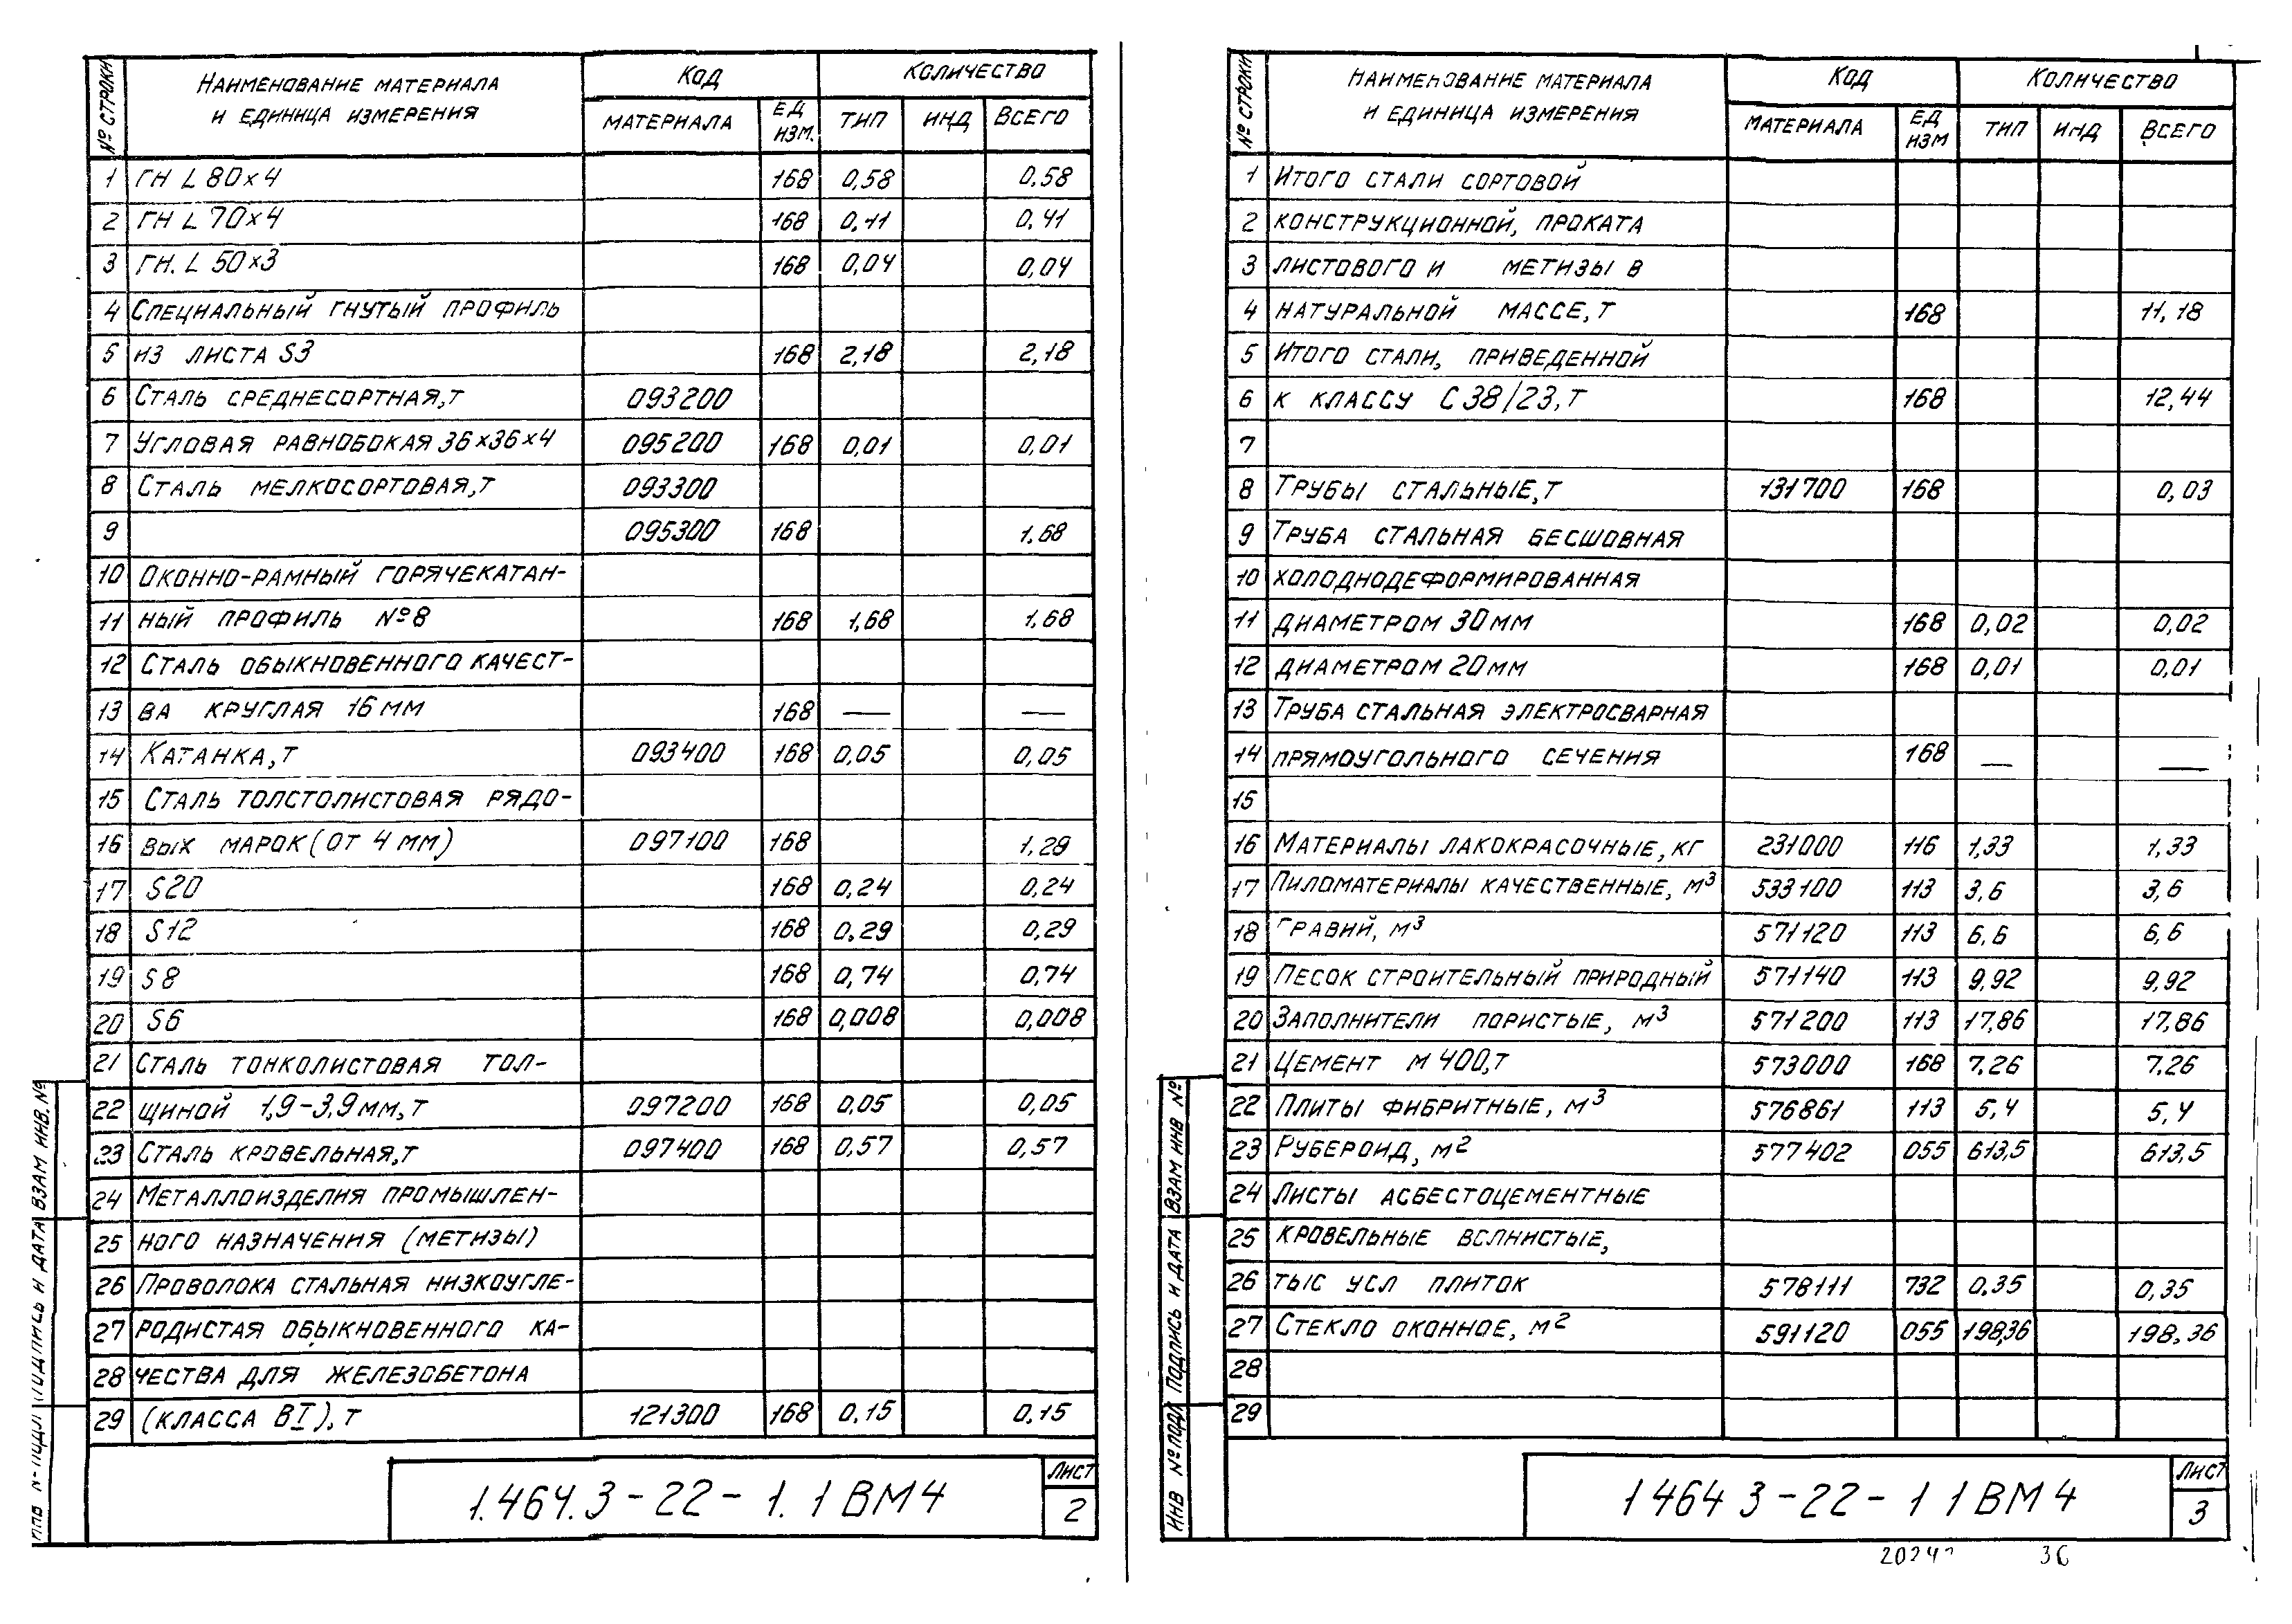 № СТРОКИ
НАИМЕНОВАНИЕ МАТЕРИАЛА И ЕДИНИЦА ИЗМЕРЕНИЯ
КОД
КОЛИЧЕСТВО
МАТЕРИАЛА ЕД ИЗМ. ТИП ИНД ВСЕГО
1 ГН L 80×4 168 0,58 0,58
2 ГН L 70×4 168 0,41 0,41
3 ГН. L 50×3 168 0,04 0,04
4 СПЕЦИАЛЬНЫЙ ГНУТЫЙ ПРОФИЛЬ
5 ИЗ ЛИСТА S3 168 2,18 2,18
6 СТАЛЬ СРЕДНЕСОРТНАЯ,Т 093200
7 УГЛОВАЯ РАВНОБОКАЯ 36×36×4 095200 168 0,01 0,01
8 СТАЛЬ МЕЛКОСОРТОВАЯ,Т 093300
9 095300 168 1,68
10 ОКОННО-РАМНЫЙ ГОРЯЧЕКАТАН-
11 НЫЙ ПРОФИЛЬ №8 168 1,68 1,68
12 СТАЛЬ ОБЫКНОВЕННОГО КАЧЕСТ-
13 ВА КРУГЛАЯ 16 ММ 168 — —
14 КАТАНКА,Т 093400 168 0,05 0,05
15 СТАЛЬ ТОЛСТОЛИСТОВАЯ РЯДО-
16 ВЫХ МАРОК (ОТ 4 ММ) 097100 168 1,29
17 S20 168 0,24 0,24
18 S12 168 0,29 0,29
19 S8 168 0,74 0,74
20 S6 168 0,008 0,008
21 СТАЛЬ ТОНКОЛИСТОВАЯ ТОЛ-
22 ЩИНОЙ 1,9-3,9ММ,Т 097200 168 0,05 0,05
23 СТАЛЬ КРОВЕЛЬНАЯ,Т 097400 168 0,57 0,57
24 МЕТАЛЛОИЗДЕЛИЯ ПРОМЫШЛЕН-
25 НОГО НАЗНАЧЕНИЯ (МЕТИЗЫ)
26 ПРОВОЛОКА СТАЛЬНАЯ НИЗКОУГЛЕ-
27 РОДИСТАЯ ОБЫКНОВЕННОГО КА-
28 ЧЕСТВА ДЛЯ ЖЕЛЕЗОБЕТОНА
29 (КЛАССА ВI),Т 121300 168 0,15 0,15
ПОДПИСЬ И ДАТА ВЗАМ ИНВ.№
1.464.3-22-1.1ВМ4
ЛИСТ
2
№ СТРОКИ
НАИМЕНОВАНИЕ МАТЕРИАЛА И ЕДИНИЦА ИЗМЕРЕНИЯ
КОД
КОЛИЧЕСТВО
МАТЕРИАЛА ЕД ИЗМ ТИП ИНД ВСЕГО
1 ИТОГО СТАЛИ СОРТОВОЙ
2 КОНСТРУКЦИОННОЙ, ПРОКАТА
3 ЛИСТОВОГО И МЕТИЗЫ В
4 НАТУРАЛЬНОЙ МАССЕ,Т 168 11,18
5 ИТОГО СТАЛИ, ПРИВЕДЕННОЙ
6 К КЛАССУ С38/23,Т 168 12,44
7
8 ТРУБЫ СТАЛЬНЫЕ,Т 131700 168 0,03
9 ТРУБА СТАЛЬНАЯ БЕСШОВНАЯ
10 ХОЛОДНОДЕФОРМИРОВАННАЯ
11 ДИАМЕТРОМ 30ММ 168 0,02 0,02
12 ДИАМЕТРОМ 20ММ 168 0,01 0,01
13 ТРУБА СТАЛЬНАЯ ЭЛЕКТРОСВАРНАЯ
14 ПРЯМОУГОЛЬНОГО СЕЧЕНИЯ 168 — —
15
16 МАТЕРИАЛЫ ЛАКОКРАСОЧНЫЕ, КГ 231000 116 1,33 1,33
17 ПИЛОМАТЕРИАЛЫ КАЧЕСТВЕННЫЕ, М³ 533100 113 3,6 3,6
18 ГРАВИЙ, М³ 571120 113 6,6 6,6
19 ПЕСОК СТРОИТЕЛЬНЫЙ ПРИРОДНЫЙ 571140 113 9,92 9,92
20 ЗАПОЛНИТЕЛИ ПОРИСТЫЕ, М³ 571200 113 17,86 17,86
21 ЦЕМЕНТ М400,Т 573000 168 7,26 7,26
22 ПЛИТЫ ФИБРИТНЫЕ, М³ 576861 113 5,4 5,4
23 РУБЕРОИД, М² 577402 055 613,5 613,5
24 ЛИСТЫ АСБЕСТОЦЕМЕНТНЫЕ
25 КРОВЕЛЬНЫЕ ВОЛНИСТЫЕ,
26 ТЫС УСЛ ПЛИТОК 578111 732 0,35 0,35
27 СТЕКЛО ОКОННОЕ, М² 591120 055 198,36 198,36
28
29
ИНВ №ПОДЛ ПОДПИСЬ И ДАТА ВЗАМ ИНВ №
1 464 3-22-1 1ВМ4
ЛИСТ
3
36